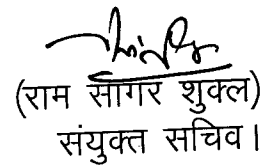 (राम सागर शुक्ल)
संयुक्त सचिव।